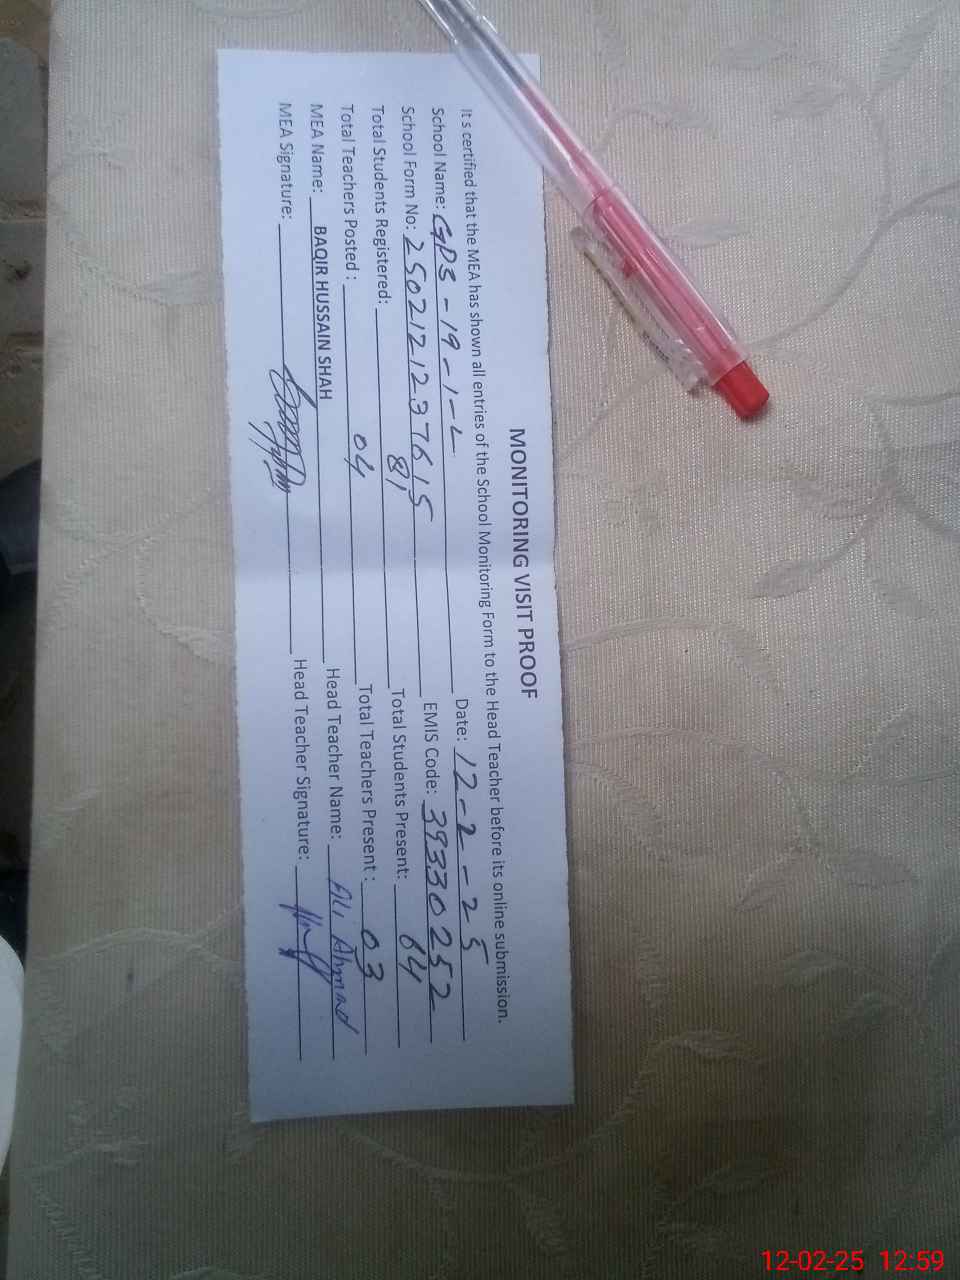 MONITORING VISIT PROOF
It s certified that the MEA has shown all entries of the School Monitoring Form to the Head Teacher before its online submission.
School Name: GPS-19-1-L Date: 12-2-25
School Form No: 2502121237615 EMIS Code: 39330252
Total Students Registered: 81 Total Students Present: 64
Total Teachers Posted : 04 Total Teachers Present : 03
MEA Name: BAQIR HUSSAIN SHAH Head Teacher Name: Ali Ahmad
MEA Signature: Head Teacher Signature:
12-02-25 12:59